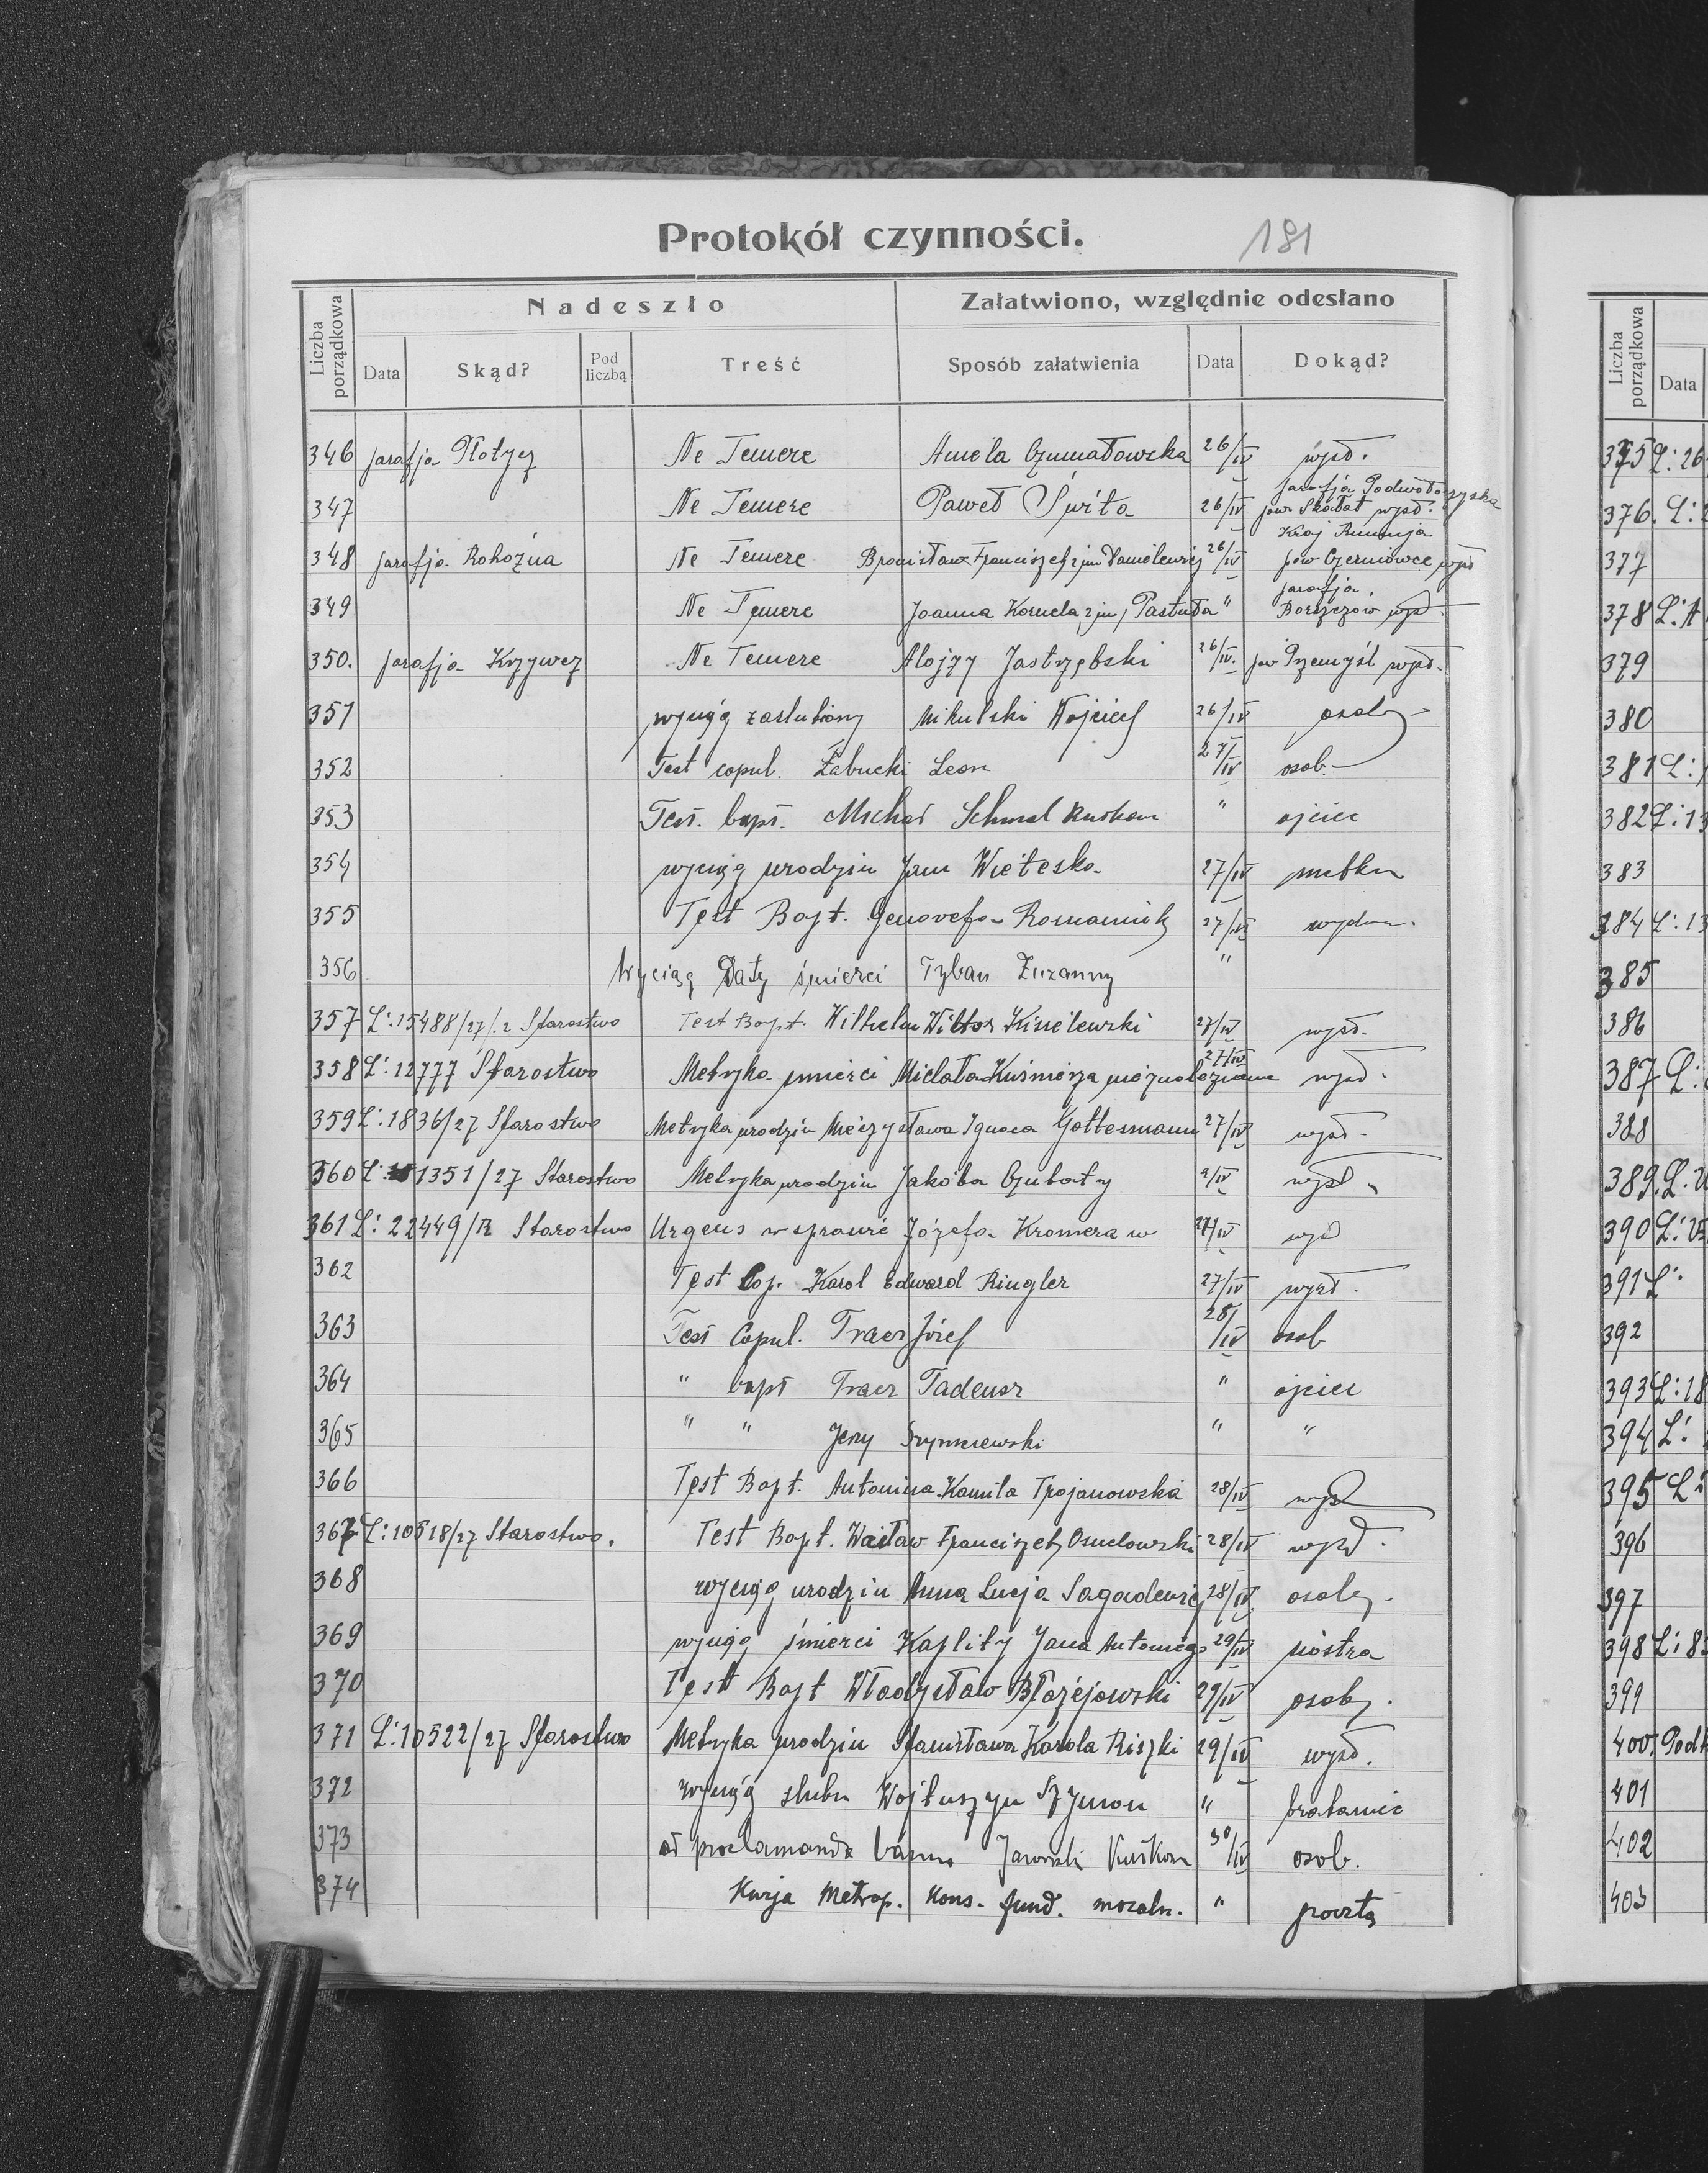 Protokół czynności. 181
Liczba porządkowa
Nadeszło
Załatwiono, względnie odesłano
Data Skąd? Pod liczbą Treść Sposób załatwienia Data Dokąd?
346 parafja Płotycz Ne Temere Amela 26/IV wysł.
347 Ne Temere Paweł Świta 26/IV parafja Podwołoczyska pow Skałat wysł.
348 parafja Rohoźna Ne Temere Bronisław Franciszek 2 im Danilewicz 26/IV Kraj Rumunja pow Czerniowce wysł
349 Ne Temere Joanna Kornela 2 im, Pastuła " parafja Borszczów wysł.
350. parafja Krzywcz Ne Temere Alojzy Jastrzębski 26/IV. pow Przemyśl wysł.
351 wyciąg zaślubiony Mikulski Wojciech 26/IV osoby
352 Test copul. Żabucki Leon 27/IV osob.
353 Test. bapt. Michał Schmal " ojciec
354 wyciąg urodzin Jan Wieteska 27/IV
355 Test Bapt. Genovefa Romaniuk 27/IV
356 Wyciąg Daty śmierci Tyban Zuzanny "
357 L:15488/27/.2 Starostwo Test Bapt. Wilhelm Wiktor Kisielewski 27/IV wysł.
358 L:12777 Starostwo Metryka śmierci Michała Kuśnierza nieznaleziona 27/IV wysł.
359 L:1836/27 Starostwo Metryka urodzin Mieczysława Ignaca Gottesmann 27/IV wysł.
360 L: 1351/27 Starostwo Metryka urodzin Jakóba Czubaty 2/IV wysł.
361 L: 22449/ Starostwo Urgens w sprawie Józefa Kromera w 27/IV wysł
362 Test Cop. Karol Edward Ringler 27/IV wysł.
363 Test Copul. Tracz Józef 28/IV osob
364 " bapt Tracz Tadeusz " ojciec
365 " " Jerzy " "
366 Test Bapt. Antonina Kamila Trojanowska 28/IV wysł
367 L:10518/27 Starostwo. Test Bapt. Wacław Franciszek Osuchowski 28/IV wysł.
368 wyciąg urodzin Anna Lucja 28/IV. osoby.
369 wyciąg śmierci Kaplity Jana Antoniego 29/IV siostra
370 Test Bapt Władysław Błażejowski 29/IV osoby.
371 L:10522/27 Starostwo Metryka urodzin Stanisława Karola Riszki 29/IV wysł.
372 wyciąg ślubu Wojtuszyn Szymon " bratanica
373 ad proclamanda banna Jaworski 30/IV osob.
374 Kurja Metrop. Kons. fund. mszaln. " pocztą
Liczba porządkowa
Data
375 L:26
376. L:
377
378 L:A
379
380
381 L:
382 L:13
383
384 L:13
385
386
387 L:
388
389. L.
390 L:
391 L:
392
393 L:18
394 L:
395 L:
396
397
398 L:8
399
400.
401
402
403